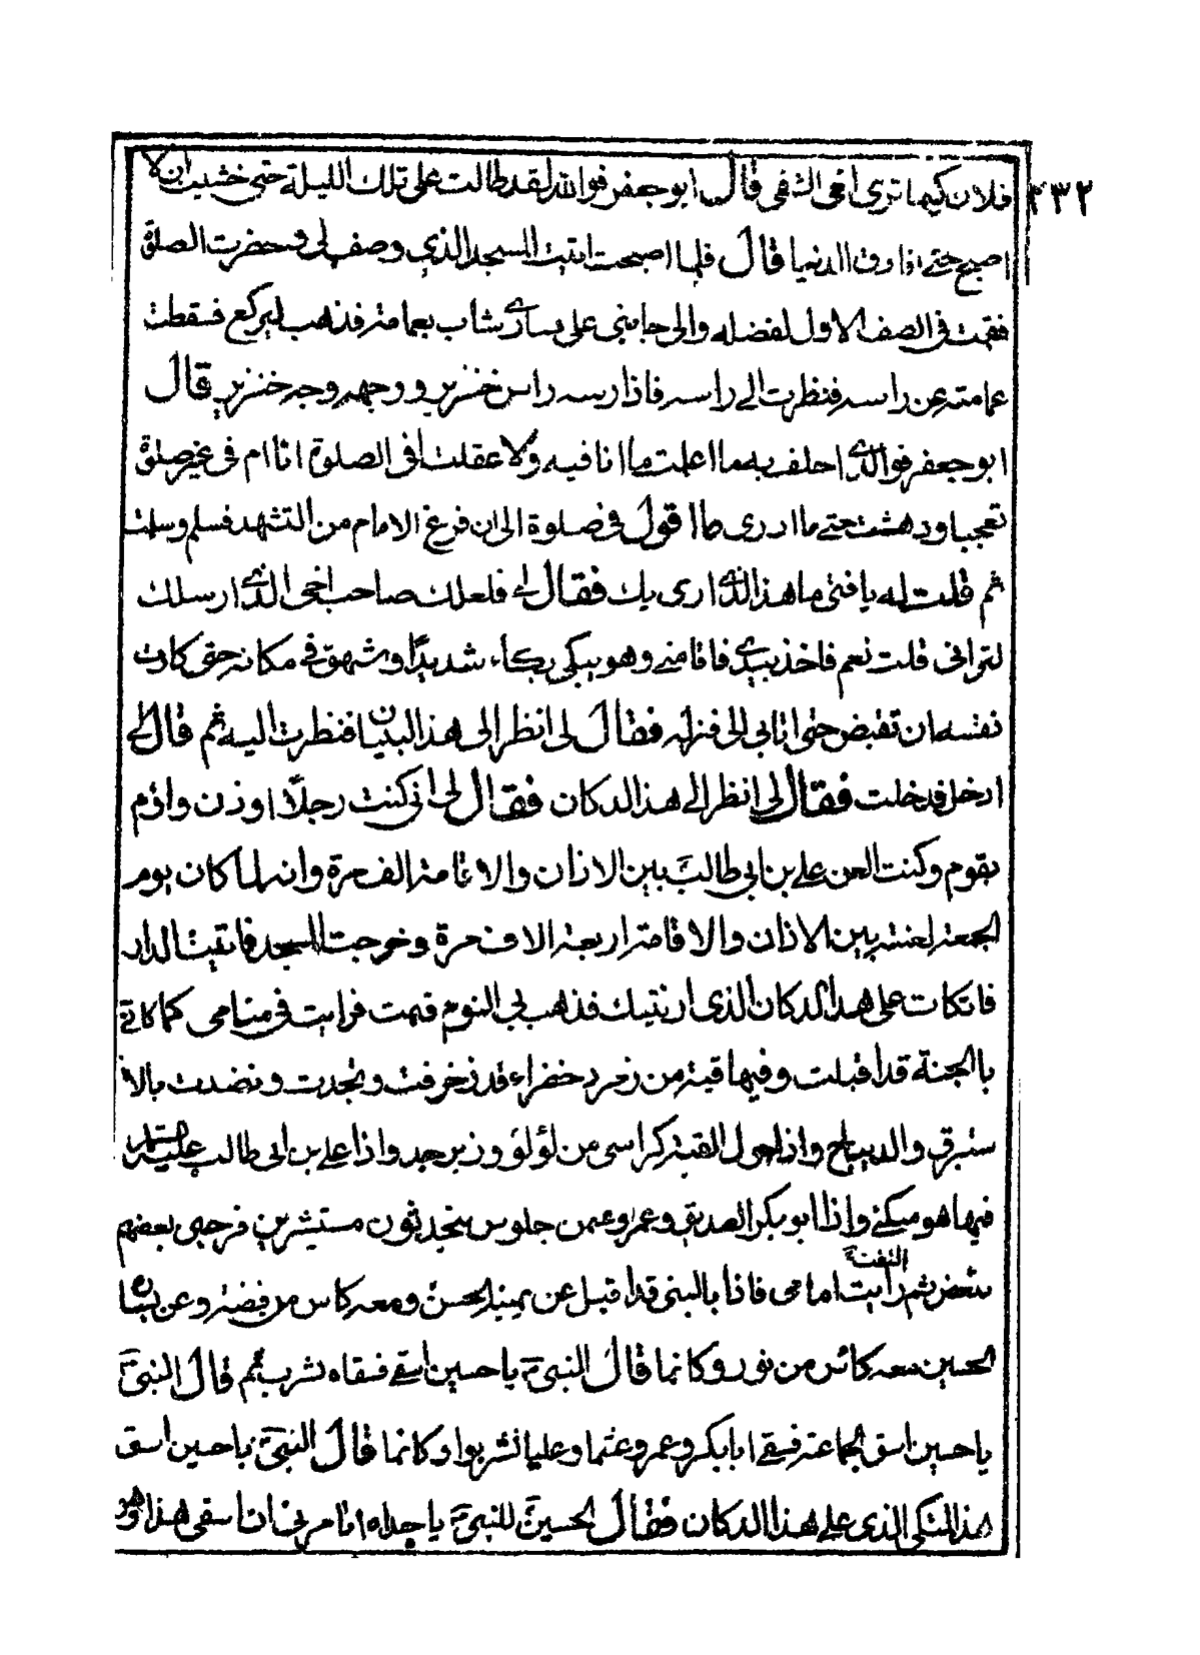 ٢٣٢
فلان كيما ترى اخي الشقي قال ابو جعفر فوالله لقد طالت على تلك الليلة حتى خشيت ان لا
اصبح حتى افارق الدنيا قال فلما اصبحت اتيت المسجد الذي وصف لي وحضرت الصلوة
فقمت في الصف الاول لفضله والى جانبي على يساري شاب بعمامة فذهب ليركع فسقطت
عمامته عن راسه فنظرت الى راسه فاذا رسه راس خنزير ووجهه وجه خنزير قال
ابو جعفر فوالذي احلف به ما اعلمت ما انا فيه ولا عقلت افى الصلوة انا ام في غير صلوة
تعجبا ودهشت حتى ما ادرى ما اقول في صلوة الى ان فرغ الامام من التشهد فسلم وسلمت
ثم قلت له يا فتى ما هذا الذي ارى بك فقال لي فلعلك صاحب اخي الذي ارسلك
لتراني قلت نعم فاخذ بيدي فاقامني وهو يبكي بكاء شديدًا وشهق في مكانه حتى كادت
نفسه ان تقبض حتى اتا بي الى منزله فقال لي انظر الى هذا البنيان فنظرت اليه ثم قال لي
ادخل فدخلت فقال لي انظر الى هذا الدكان فقال لي اني كنت رجلًا اوذن واؤم
بقوم وكنت العن علي بن ابي طالب بين الاذان والاقامة الف مرة وانه لما كان يوم
الجمعة لعنته بين الاذان والاقامة اربعة الاف مرة وخرجت المسجد فاتيت الدار
فاتكات على هذا الدكان الذي اريتك فذهب بي النوم فنمت فرايت في منامي كما كاني
بالجنة قد اقبلت وفيها قبة من زمرد خضراء قد زخرفت ونجدت ونضدت بالا
ستبرق والديباج واذا حول القبة كراسي من لؤلؤ وزبرجد واذا علي بن ابي طالب عليه
فيها هو متكئ واذا ابو بكر الصديق وعمر وعمن جلوس يتحدثون مستبشرين فرحين بعضهم
ببعض ثم التفت رايت امامي فاذا بالنبي قد اقبل عن يمينه الحسن ومعه كاس من فضة وعن يساره
الحسين معه كاس من نور وكانما قال النبي يا حسين اسقي فسقاه شرب ثم قال النبي
يا حسين اسق الجماعة فسقى ابا بكر وعمر وعثما وعليا فشربوا وكانما قال النبي يا حسين اسق
هذا المتكي الذي على هذا الدكان فقال الحسين للنبي يا جداه اتامرني ان اسقي هذا وهو